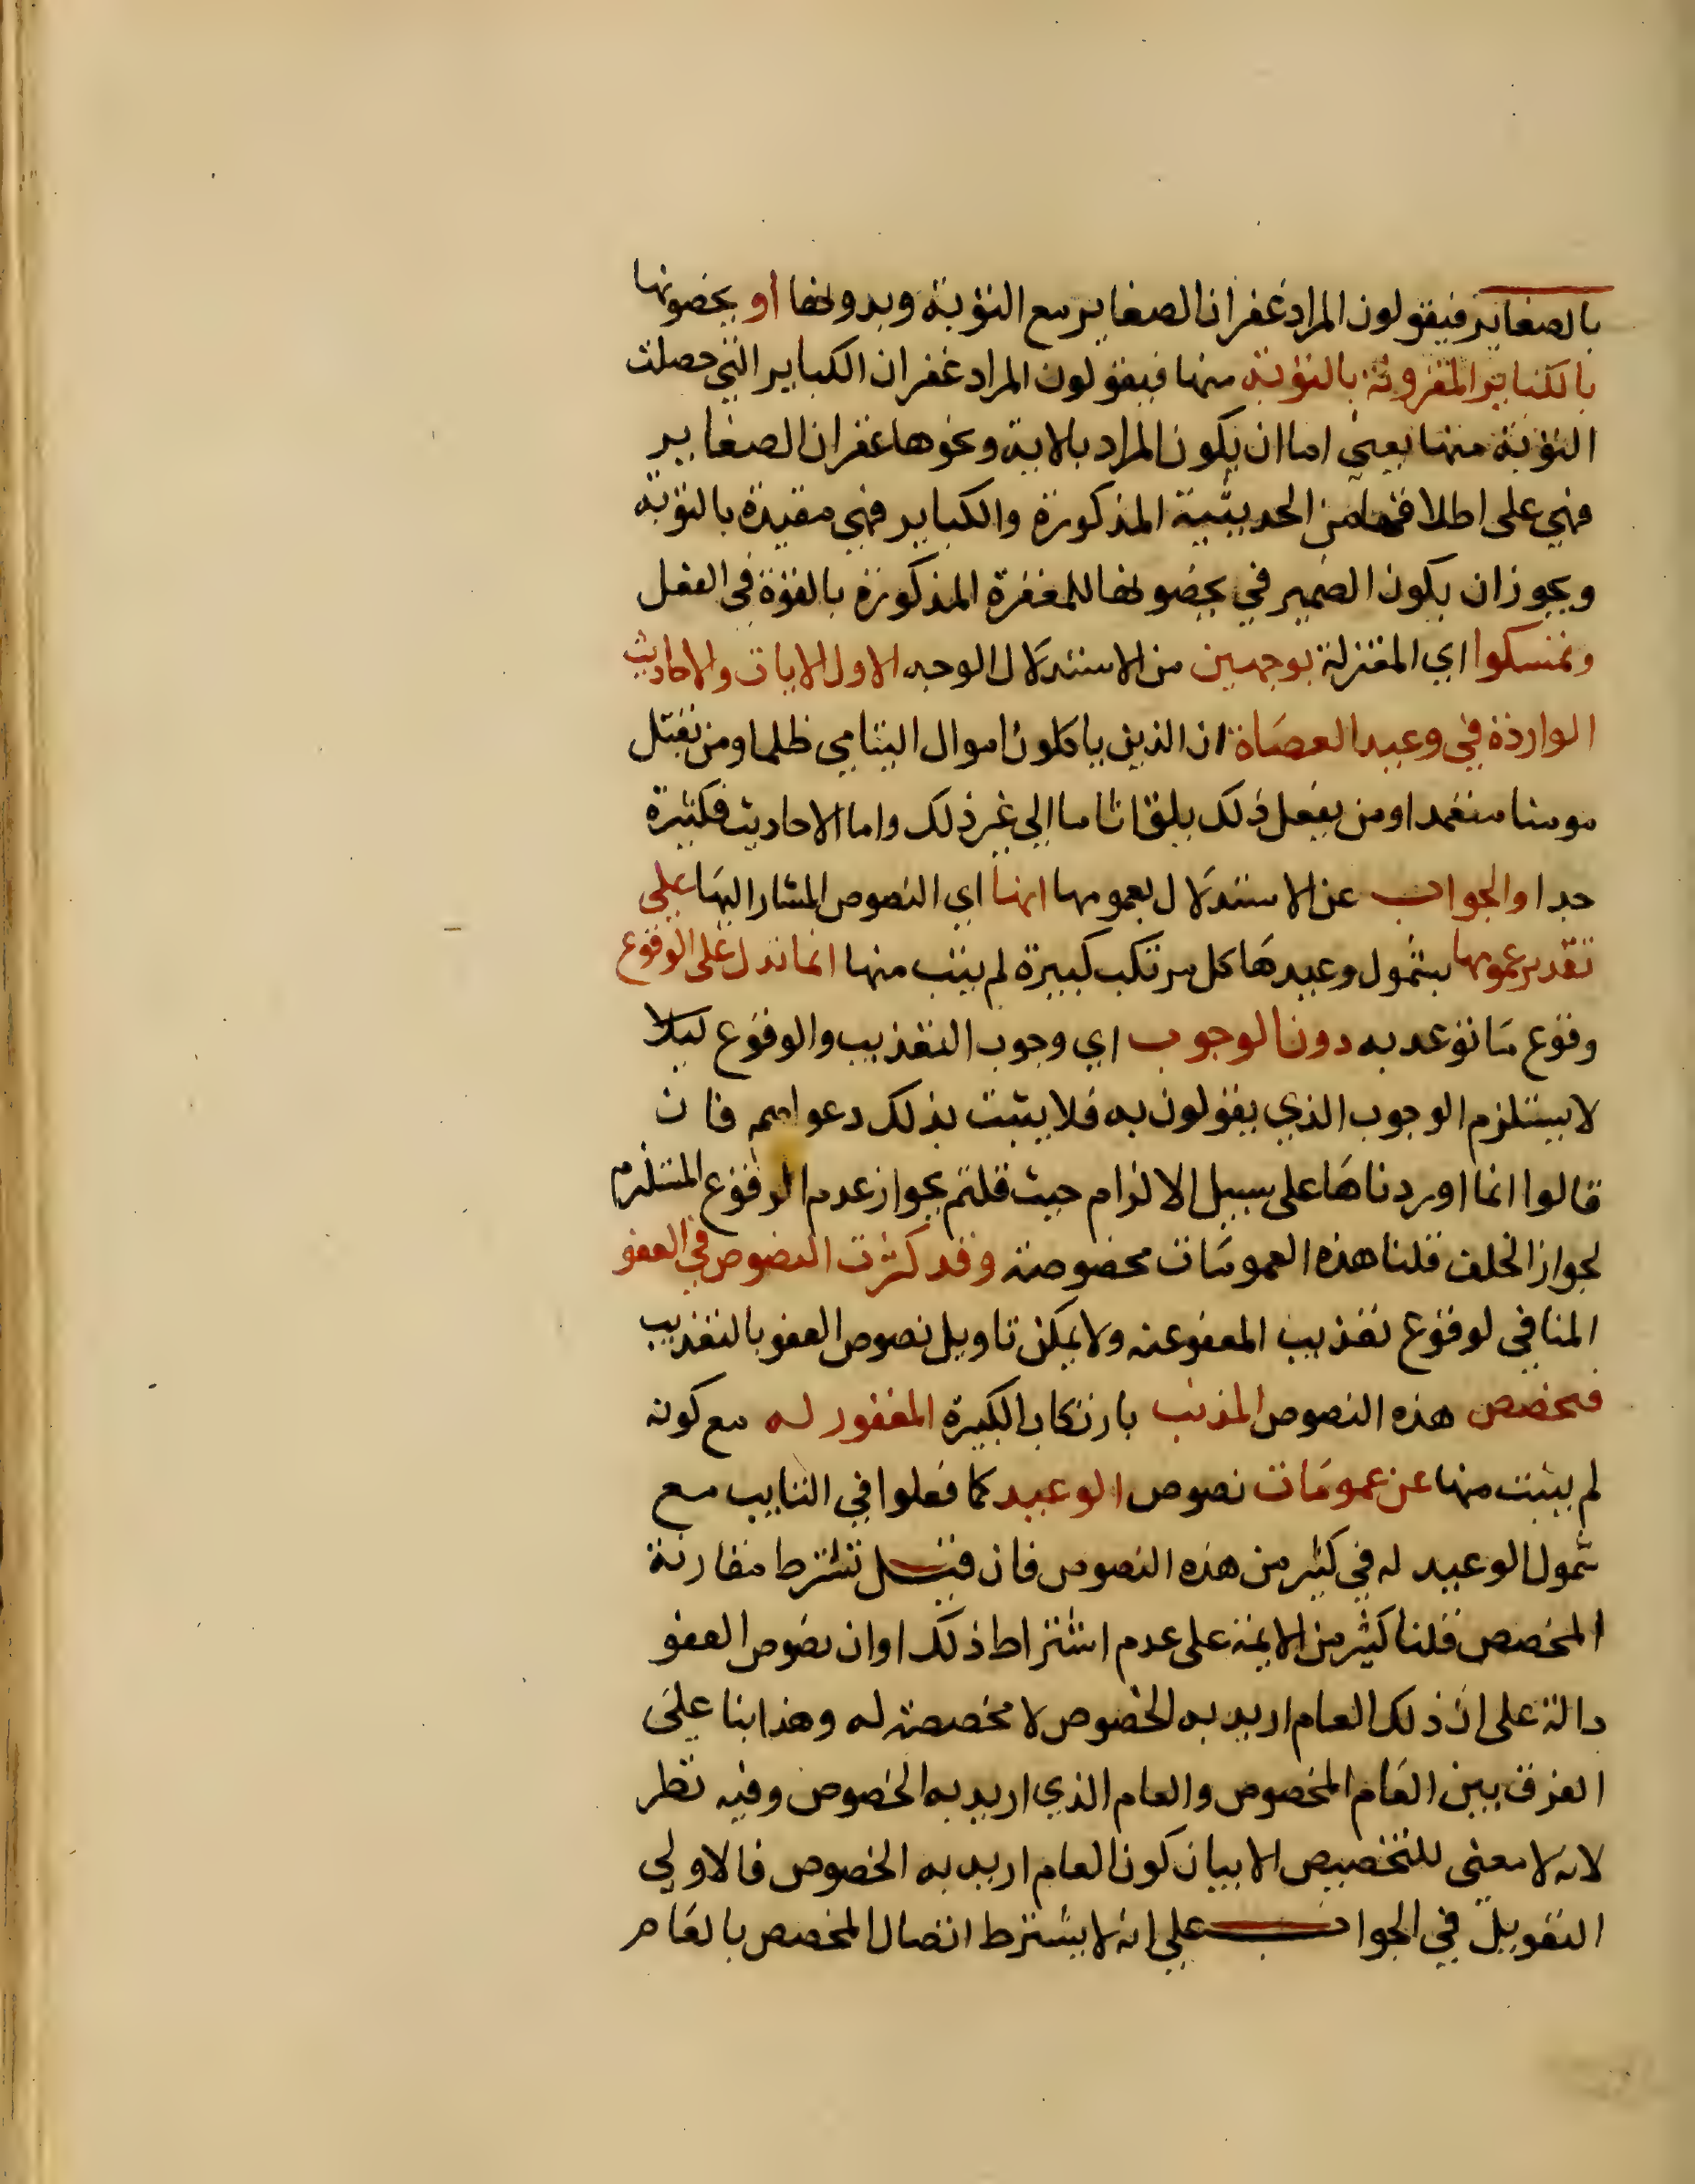 بالصغاير فيقولون المراد غفران الصغاير مع التوبة وبدونها او يخصونها
بالكباير المقرونة بالتوبة منها فيقولون المراد غفران الكباير التي حصلت
التوبة منها يعني اما ان يكون المراد بالاية ونحوها غفران الصغاير
فهي على اطلاقها من الحديثية المذكورة والكباير فهي مقيدة بالتوبة
ويجوز ان يكون الضمير في يخصونها للمغفرة المذكورة بالقوة في الفعل
وتمسكوا اي المعتزلة بوجهين من الاستدلال الوجه الاول الايات والاحاديث
الواردة في وعيد العصاة ان الذين ياكلون اموال اليتامي ظلما ومن يقتل
مومنا متعمدا ومن يفعل ذلك يلق اثاما الي غير ذلك واما الاحاديث فكثيرة
جدا والجواب عن الاستدلال بعمومها انها اي النصوص المشار اليها علي
تقدير عمومها بشمول وعيدها كل مرتكب كبيرة لم يتب منها انما تدل على الوقوع
وقوع ما توعد به دون الوجوب اي وجوب التعذيب والوقوع ليلا
لا يستلزم الوجوب الذي يقولون به فلا يثبت بذلك دعواهم فان
قالوا انما اوردناها على سبيل الالزام حيث قلتم بجواز عدم الوقوع المستلزم
لجواز الخلف قلنا هذه العمومات مخصوصة وقد كثرت النصوص في العفو
المنافي لوقوع تعذيب المعفو عنه ولا يمكن تاويل نصوص العفو بالتعذيب
فتخصص هذه النصوص المذنب بارتكاب الكبيرة المغفور له مع كونه
لم يتب منها عن عمومات نصوص الوعيد كما فعلوا في التايب مع
شمول الوعيد له في كثير من هذه النصوص فان قيل تشترط مقارنة
المخصص قلنا كثير من الايمة على عدم اشتراط ذلك او ان نصوص العفو
دالة على ان ذلك العام اريد به الخصوص لا مخصصة له وهذا بنا على
الفرق بين العام المخصوص والعام الذي اريد به الخصوص وفيه نظر
لانه لا معنى للتخصيص الا بيان كون العام اريد به الخصوص فالاولي
التعويل في الجواب علي انه لا يشترط اتصال المخصص بالعام